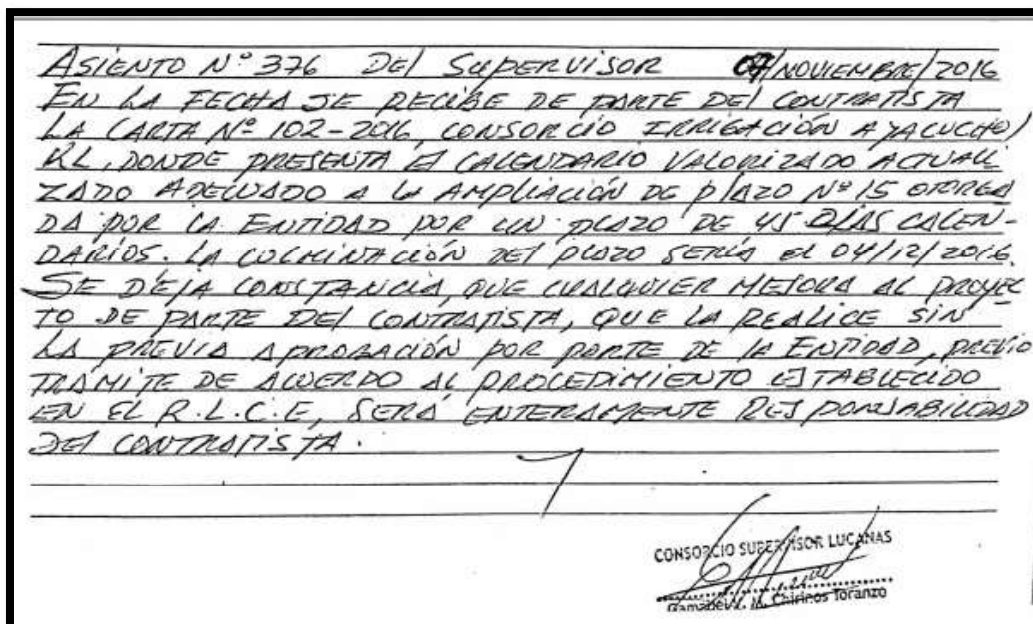 ASIENTO N° 376 DEL SUPERVISOR 07/NOVIEMBRE/2016
EN LA FECHA SE RECIBE DE PARTE DEL CONTRATISTA
LA CARTA N° 102-2016, CONSORCIO IRRIGACIÓN AYACUCHO/
RL, DONDE PRESENTA EL CALENDARIO VALORIZADO ACTUALI
ZADO ADECUADO A LA AMPLIACIÓN DE PLAZO N° 15 OTORGA
DA POR LA ENTIDAD POR UN PLAZO DE 45 DÍAS CALEN-
DARIOS. LA CULMINACIÓN DEL PLAZO SERÍA EL 04/12/2016.
SE DEJA CONSTANCIA, QUE CUALQUIER MEJORA AL PROYEC
TO DE PARTE DEL CONTRATISTA, QUE LA REALICE SIN
LA PREVIA APROBACIÓN POR PARTE DE LA ENTIDAD, PREVIO
TRÁMITE DE ACUERDO AL PROCEDIMIENTO ESTABLECIDO
EN EL R.L.C.E, SERÁ ENTERAMENTE RESPONSABILIDAD
DEL CONTRATISTA.
CONSORCIO SUPERVISOR LUCANAS
Chirinos Toranzo